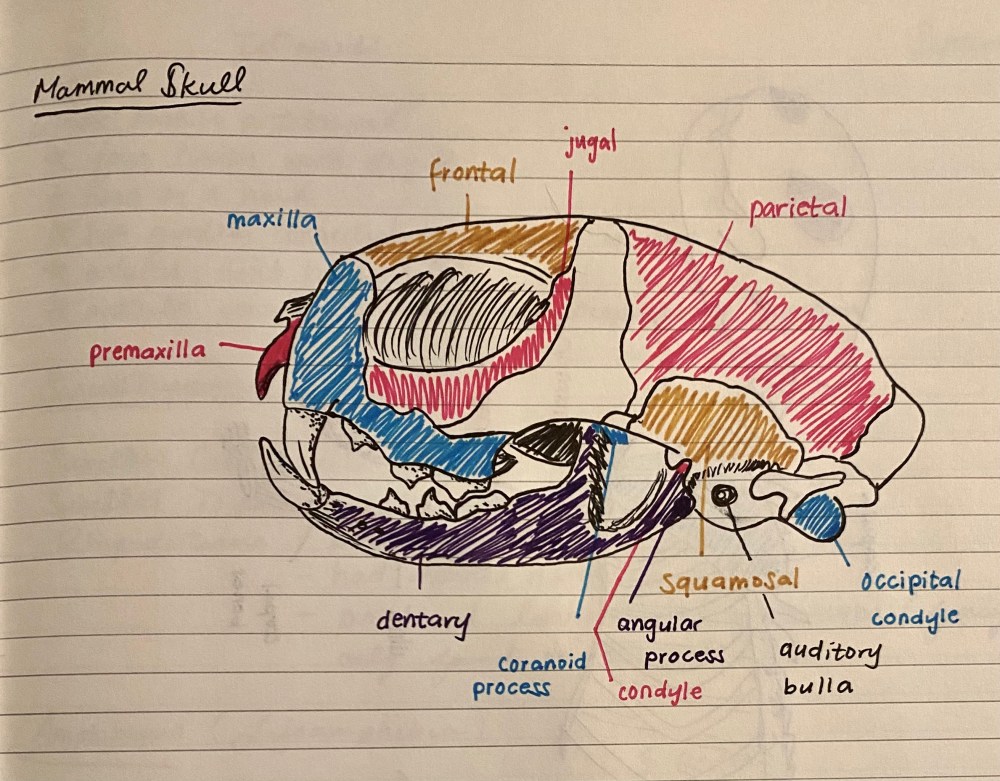 Mammal Skull
jugal
frontal
parietal
maxilla
premaxilla
squamosal
occipital
condyle
dentary
angular
process
auditory
bulla
coranoid
process
condyle